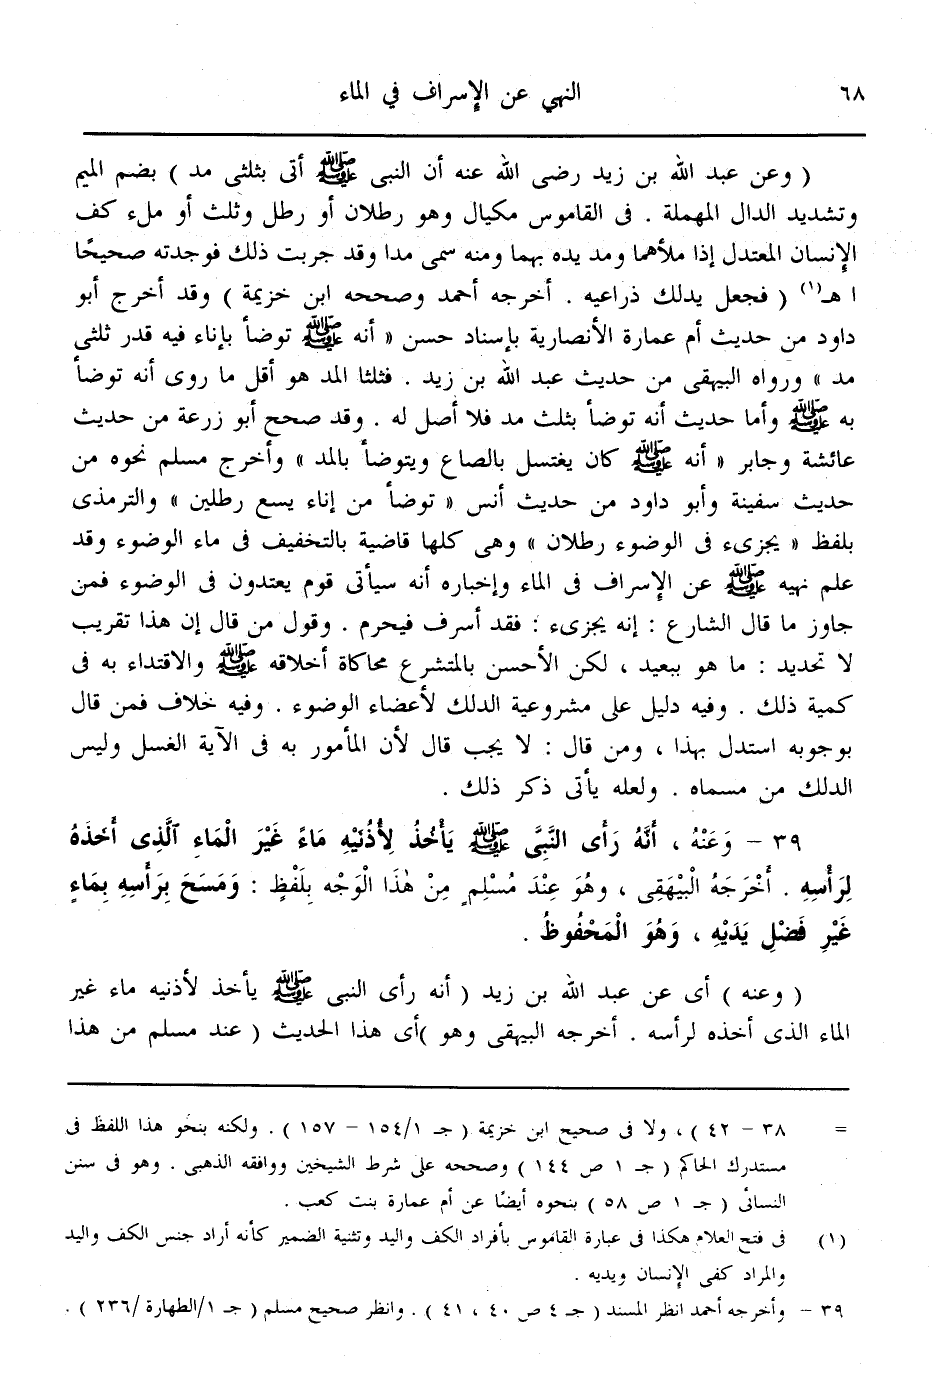 ٦٨
النهي عن الإسراف في الماء
( وعن عبد الله بن زيد رضى الله عنه أن النبى ﷺ أتى بثلثى مد ) بضم الميم
وتشديد الدال المهملة . فى القاموس مكيال وهو رطلان أو رطل وثلث أو ملء كف
الإنسان المعتدل إذا ملأهما ومد يده بهما ومنه سمى مدا وقد جربت ذلك فوجدته صحيحًا
ا هـ(١) ( فجعل يدلك ذراعيه . أخرجه أحمد وصححه ابن خزيمة ) وقد أخرج أبو
داود من حديث أم عمارة الأنصارية بإسناد حسن « أنه ﷺ توضأ بإناء فيه قدر ثلثى
مد » ورواه البيهقى من حديث عبد الله بن زيد . فثلثا المد هو أقل ما روى أنه توضأ
به ﷺ وأما حديث أنه توضأ بثلث مد فلا أصل له . وقد صحح أبو زرعة من حديث
عائشة وجابر « أنه ﷺ كان يغتسل بالصاع ويتوضأ بالمد » وأخرج مسلم نحوه من
حديث سفينة وأبو داود من حديث أنس « توضأ من إناء يسع رطلين » والترمذى
بلفظ « يجزىء فى الوضوء رطلان » وهى كلها قاضية بالتخفيف فى ماء الوضوء وقد
علم نهيه ﷺ عن الإسراف فى الماء وإخباره أنه سيأتى قوم يعتدون فى الوضوء فمن
جاوز ما قال الشارع : إنه يجزىء : فقد أسرف فيحرم . وقول من قال إن هذا تقريب
لا تحديد : ما هو ببعيد ، لكن الأحسن بالمتشرع محاكاة أخلاقه ﷺ والاقتداء به فى
كمية ذلك . وفيه دليل على مشروعية الدلك لأعضاء الوضوء . وفيه خلاف فمن قال
بوجوبه استدل بهذا ، ومن قال : لا يجب قال لأن المأمور به فى الآية الغسل وليس
الدلك من مسماه . ولعله يأتى ذكر ذلك .
٣٩ – وَعَنْهُ ، أَنَّهُ رَأَى النَّبِىَّ ﷺ يَأْخُذُ لِأُذُنَيْهِ مَاءً غَيْرَ الْمَاءِ ٱلَّذِى أَخَذَهُ
لِرَأْسِهِ . أَخْرَجَهُ الْبَيْهَقِى ، وهُوَ عِنْدَ مُسْلِمٍ مِنْ هٰذَا الْوَجْه بِلَفْظٍ : وَمَسَحَ بِرَأْسِهِ بِمَاءٍ
غَيْرِ فَضْلِ يَدَيْهِ ، وَهُوَ الْمَحْفُوظُ .
( وعنه ) أى عن عبد الله بن زيد ( أنه رأى النبى ﷺ يأخذ لأذنيه ماء غير
الماء الذى أخذه لرأسه . أخرجه البيهقى وهو )أى هذا الحديث ( عند مسلم من هذا
= ٣٨ – ٤٢ ) ، ولا فى صحيح ابن خزيمة ( جـ ١/١٥٤ – ١٥٧ ) . ولكنه بنحو هذا اللفظ فى
مستدرك الحاكم ( جـ ١ ص ١٤٤ ) وصححه على شرط الشيخين ووافقه الذهبى . وهو فى سنن
النسائى ( جـ ١ ص ٥٨ ) بنحوه أيضًا عن أم عمارة بنت كعب .
(١) فى فتح العلام هكذا فى عبارة القاموس بأفراد الكف واليد وتثنية الضمير كأنه أراد جنس الكف واليد
والمراد كفى الإنسان ويديه .
٣٩ – وأخرجه أحمد انظر المسند ( جـ ٤ ص ٤٠ ، ٤١ ) . وانظر صحيح مسلم ( جـ ١/الطهارة /٢٣٦ ) .